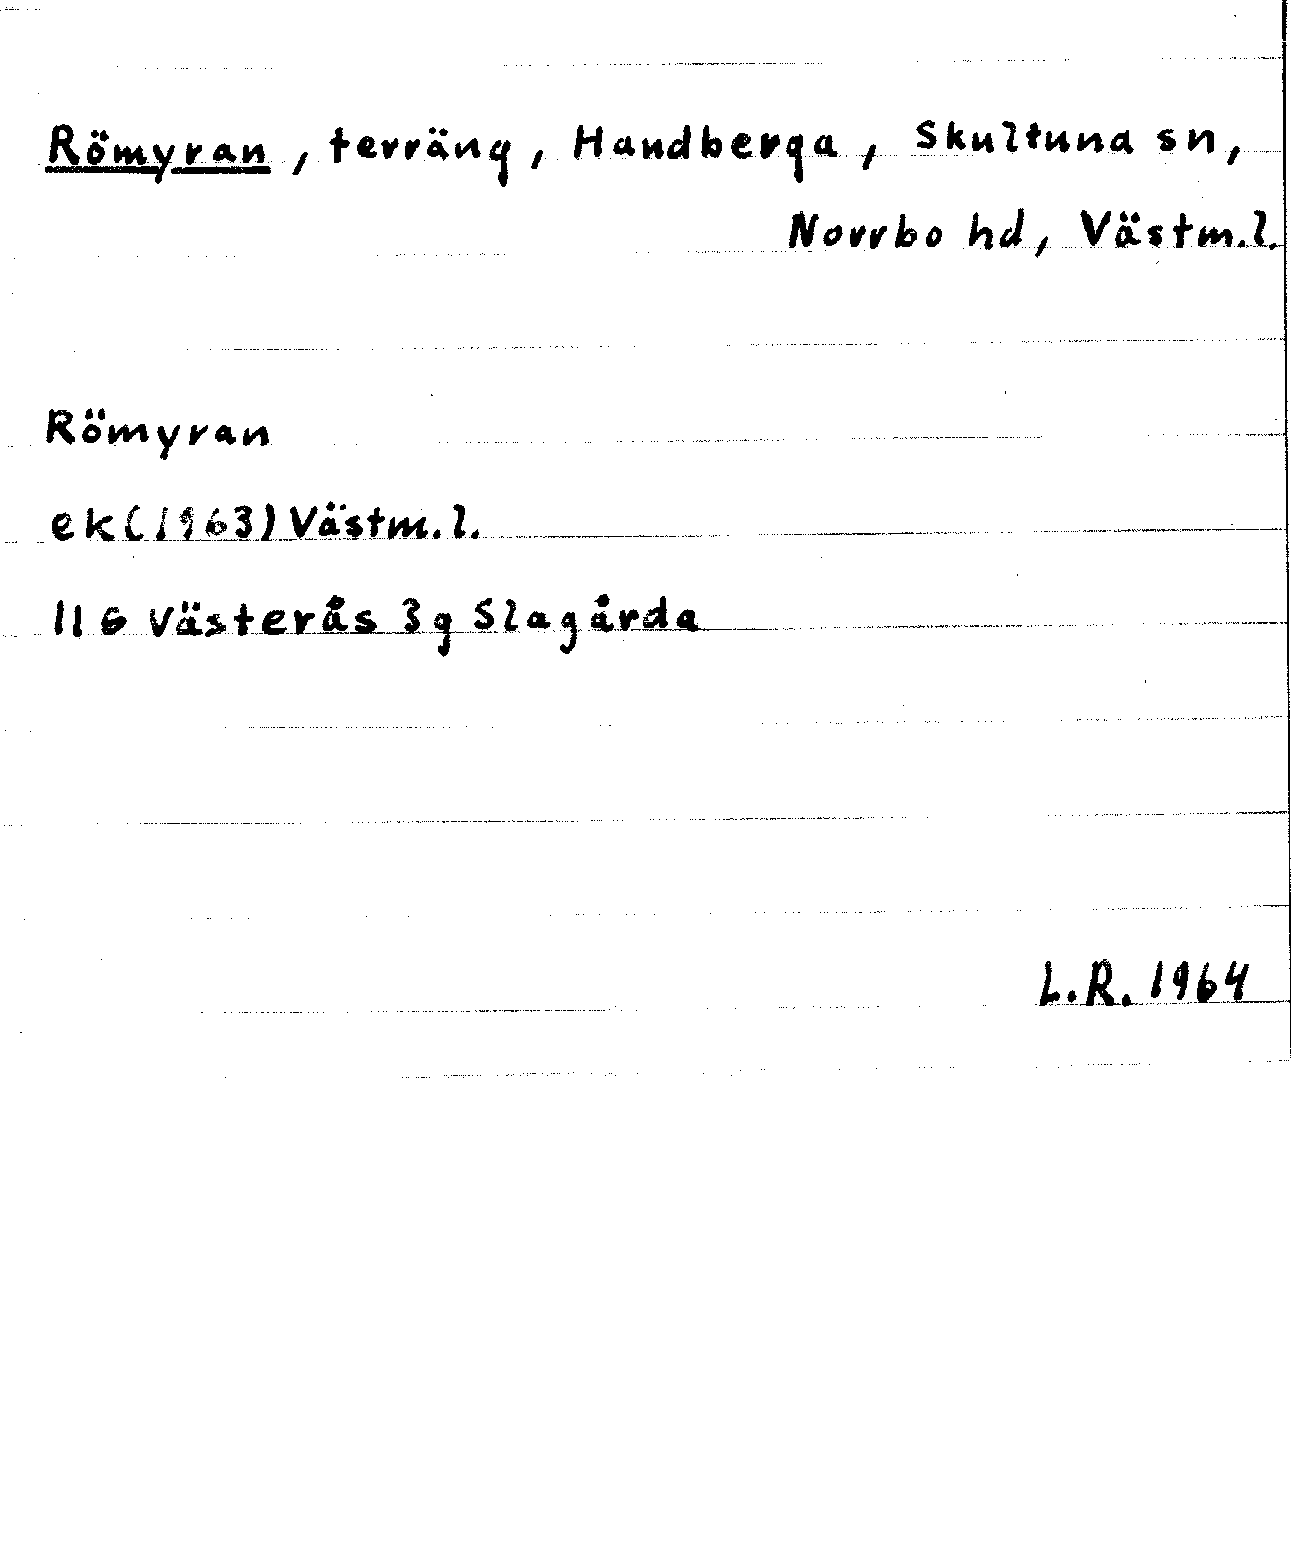 Römyran, terräng, Handberga, Skultuna sn,
Norrbo hd, Västm.l.
Römyran
ek (1963) Västm.l.
11 G Västerås 3g Slagårda
L.R. 1964